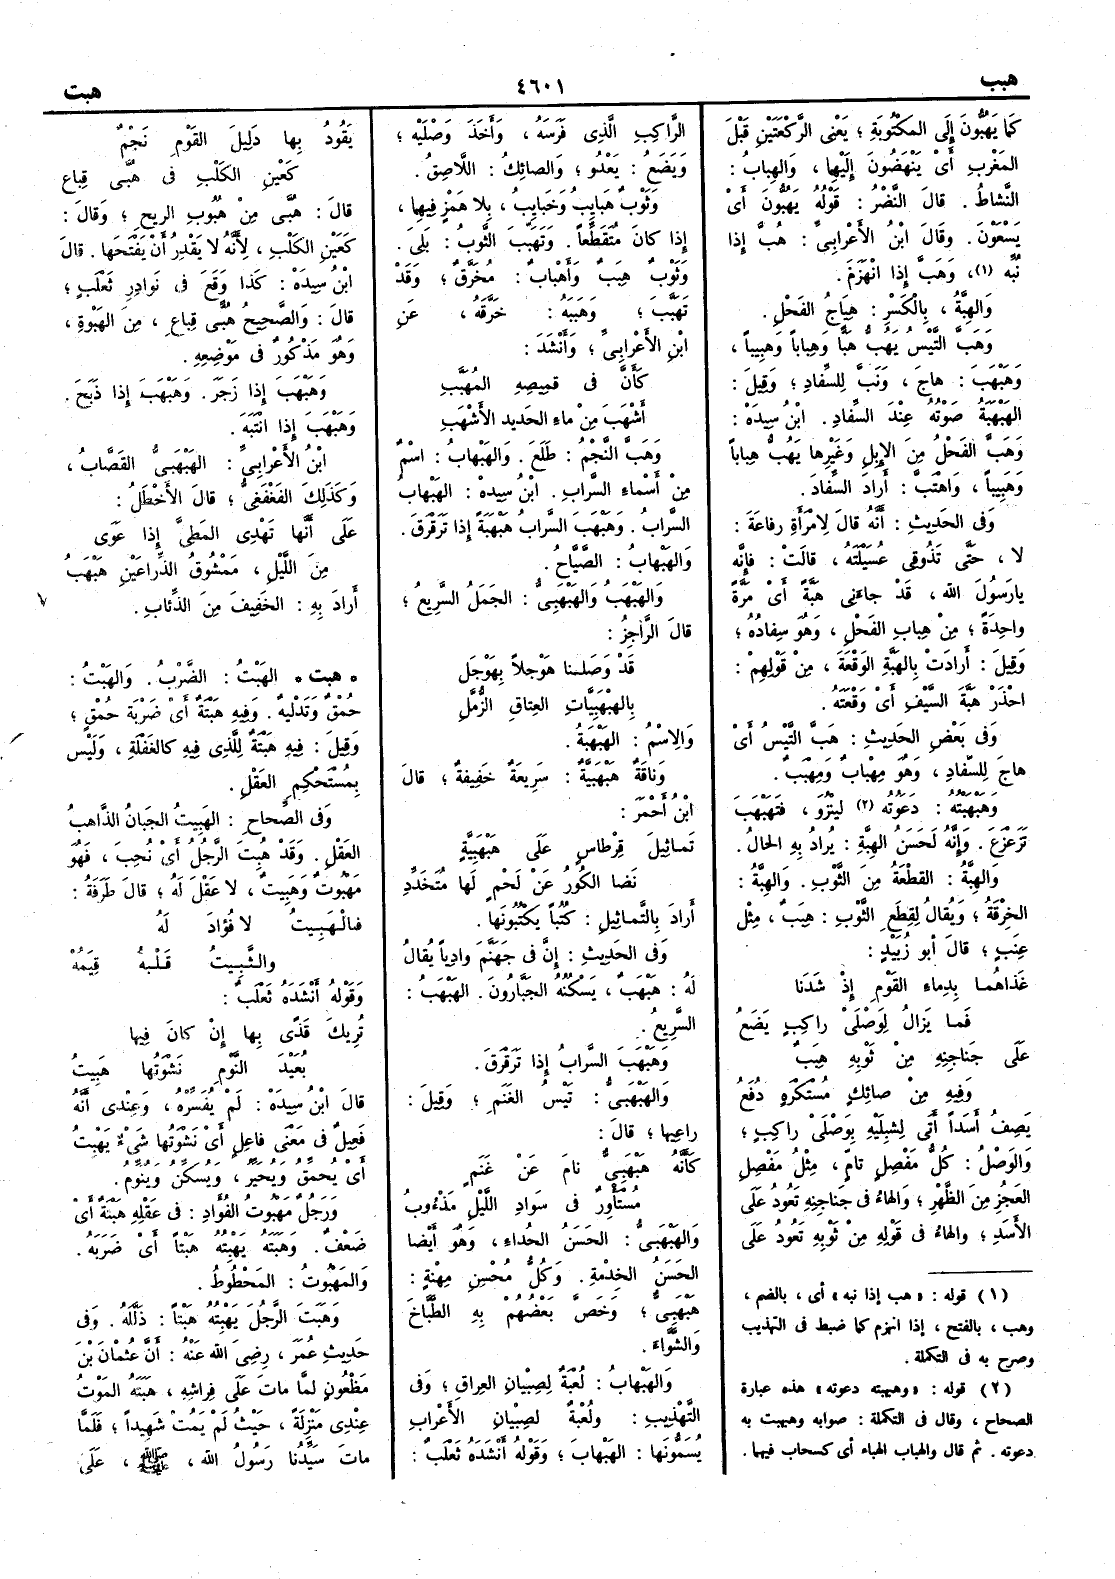 هبب
٤٦٠١
هبت
كَما يَهُبُّونَ إِلَى المَكْتُوبَةِ ؛ يَعْنِى الرَّكْعَتَيْنِ قَبْلَ
المَغْرِبِ أَىْ يَنْهَضُونَ إِلَيْها ، وَالهِبابُ :
النَّشاطُ . قالَ النَّضْرُ : قَوْلُهُ يَهُبُّونَ أَىْ
يَسْعَوْنَ . وَقالَ ابْنُ الأَعْرابِىِّ : هُبَّ إِذا
نُبِّه (١) ، وَهَبَّ إِذا انْهَزَمَ .
وَالهِبَّةُ ، بِالكَسْرِ : هِياجُ الفَحْلِ .
وَهَبَّ التَّيْسُ يَهُبُّ هَبًّا وَهِباباً وَهَبِيباً ،
وَهَبْهَبَ : هاجَ ، وَنَبَّ لِلسِّفادِ ؛ وَقِيلَ :
الهَبْهَبَةُ صَوْتُهُ عِنْدَ السِّفادِ . ابْنُ سِيدَهْ :
وَهَبَّ الفَحْلُ مِنَ الإِبِلِ وَغَيْرِها يَهُبُّ هِباباً
وَهَبِيباً ، وَاهْتَبَّ : أَرادَ السِّفادَ .
وَفِى الحَدِيثِ : أَنَّهُ قالَ لاِمْرَأَةِ رِفاعَةَ :
لا ، حَتَّى تَذُوقِى عُسَيْلَتَهُ ، قالَتْ : فَإِنَّه
يارَسُولَ اللهِ ، قَدْ جاءَنِى هَبَّةً أَىْ مَرَّةً
واحِدَةً ؛ مِنْ هِبابِ الفَحْلِ ، وَهُوَ سِفادُهُ ؛
وَقِيلَ : أَرادَتْ بِالهَبَّةِ الوَقْعَةَ ، مِنْ قَوْلِهِمْ :
احْذَرْ هَبَّةَ السَّيْفِ أَىْ وَقْعَتَهُ .
وَفِى بَعْضِ الحَدِيثِ : هَبَّ التَّيْسُ أَىْ
هاجَ لِلسِّفادِ ، وَهُوَ مِهْبابٌ وَمِهْبَبٌ .
وَهَبْهَبْتُهُ : دَعَوْتُه (٢) لِيَنْزُوَ ، فَتَهَبْهَبَ
تَزَعْزَعَ . وَإِنَّهُ لَحَسَنُ الهِبَّةِ : يُرادُ بِهِ الحالُ .
وَالهِبَّةُ : القِطْعَةُ مِنَ الثَّوْبِ . وَالهِبَّةُ :
الخِرْقَةُ ؛ وَيُقالُ لِقِطَعِ الثَّوْبِ : هِبَبٌ ، مِثْل
عِنَبٍ ؛ قالَ أَبو زُبَيْدٍ :
غَذاهُمــا بِدِماءِ القَوْمِ إِذْ شَدَنا
فَما يَزالُ لِوَصْلَىْ راكِبٍ يَضَعُ
عَلَى جَناجِنِهِ مِنْ ثَوْبِهِ هِبَبٌ
وَفِيهِ مِنْ صائِكٍ مُسْتَكْرَهٍ دُفَعُ
يَصِفُ أَسَداً أَتَى لِشِبْلَيْهِ بِوَصْلَىْ راكِبٍ ؛
وَالوَصْلُ : كُلُّ مَفْصِلٍ تامٍّ ، مِثْلُ مَفْصِلِ
العَجُزِ مِنَ الظَّهْرِ ؛ وَالهاءُ فى جَناجِنِهِ تَعُودُ عَلَى
الأَسَدِ ؛ والهاءُ فى قَوْلِهِ مِنْ ثَوْبِهِ تَعُودُ عَلَى
(١) قوله : «هب إذا نبه» أى ، بالضم ،
وهب ، بالفتح ، إذا انهزم كما ضبط فى التهذيب
وصرح به فى التكملة .
(٢) قوله : «وهبهبته دعوته» هذه عبارة
الصحاح ، وقال فى التكملة : صوابه وهبهبت به
دعوته . ثم قال والهباب الهباء أى كسحاب فيهما .
الرَّاكِبِ الَّذِى فَرَسَهُ ، وَأَخَذَ وَصْلَيْه ؛
وَيَضَعُ : يَعْدُو ؛ وَالصائِكُ : اللَّاصِقُ .
وَثَوْبٌ هَبايِبُ وَخَبايِبُ ، بِلا هَمْزٍ فِيهِما ،
إِذا كانَ مُتَقَطِّعاً . وَتَهَبَّبَ الثَّوبُ : بَلِىَ .
وَثَوْبٌ هِبَبٌ وَأَهْبابٌ : مُخَرَّقٌ ؛ وَقَدْ
تَهَبَّبَ ؛ وَهَبَّبَهُ : خَرَّقَهُ ، عَنِ
ابْنِ الأَعْرابِىِّ ؛ وَأَنْشَدَ :
كَأَنَّ فى قَمِيصِهِ المُهَبَّبِ
أَشْهَبَ مِنْ ماءِ الحَديد الأَشْهَبِ
وَهَبَّ النَّجْمُ : طَلَعَ . وَالهَبْهابُ : اسْمٌ
مِنْ أَسْماءِ السَّرابِ . ابْنُ سِيدَهْ : الهَبْهابُ
السَّرابُ . وَهَبْهَبَ السَّرابُ هَبْهَبَةً إِذا تَرَقْرَقَ .
وَالهَبْهابُ : الصَّيَّاحُ .
وَالهَبْهَبُ وَالهَبْهَبِىُّ : الجَمَلُ السَّرِيعُ ؛
قالَ الرَّاجِزُ :
قَدْ وَصَلْنا هَوْجَلاً بِهَوْجَلِ
بِالهَبْهَبِيَّاتِ العِتاقِ الزُّمَّلِ
وَالاِسْمُ : الهَبْهَبَةُ .
وَناقَةٌ هَبْهَبِيَّةٌ : سَرِيعَةٌ خَفِيفَةٌ ؛ قالَ
ابْنُ أَحْمَرَ :
تَماثِيلَ قِرْطاسٍ عَلَى هَبْهَبِيَّةٍ
نَضا الكُورُ عَنْ لَحْمٍ لَها مُتَخَدِّدِ
أَرادَ بِالتَّماثِيلِ : كُتُباً يَكْتُبُونَها .
وَفِى الحَدِيثِ : إِنَّ فى جَهَنَّمَ وادِياً يُقالُ
لَهُ : هَبْهَبٌ ، يَسْكُنُهُ الجَبَّارُونَ . الهَبْهَبُ :
السَّرِيعُ .
وَهَبْهَبَ السَّرابُ إِذا تَرَقْرَقَ .
وَالهَبْهَبِىُّ : تَيْسُ الغَنَمِ ؛ وَقِيلَ :
راعِيها ؛ قالَ :
كَأَنَّهُ هَبْهَبِىٌّ نامَ عَنْ غَنَمٍ
مُسْتَأْوِرٌ فى سَوادِ اللَّيْلِ مَذْءُوبُ
وَالهَبْهَبِىُّ : الحَسَنُ الحُداءِ ، وَهُوَ أَيْضا
الحَسَنُ الخِدْمَةِ . وَكُلُّ مُحْسِنِ مِهْنَةٍ :
هَبْهَبِىٌّ ؛ وَخَصَّ بَعْضُهُمْ بِهِ الطَّبَّاخَ
وَالشَّوَّاءَ .
وَالهَبْهابُ : لُعْبَةٌ لِصِبْيانِ العِراقِ ؛ وَفى
التَّهْذِيبِ : وَلُعْبَةٌ لصِبْيانِ الأَعْرابِ
يُسَمُّونَها : الهَبْهابَ ؛ وَقَوْلُهُ أَنْشَدَهُ ثَعْلَبٌ :
يَقُودُ بِها دَلِيلَ القَوْمِ نَجْمٌ
كَعَيْنِ الكَلْبِ فى هُبَّى قِباعِ
قالَ : هُبَّى مِنْ هُبُوبِ الرِيحِ ؛ وَقالَ :
كَعَيْنِ الكَلْبِ ، لِأَنَّهُ لا يَقْدِرُ أَنْ يَفْتَحَها . قالَ
ابْنُ سِيدَهْ : كَذا وَقَعَ فى نَوادِرِ ثَعْلَبٍ ؛
قالَ : وَالصَّحِيحُ هُبَّى قِباعٍ ، مِنَ الهَبْوَةِ ،
وَهُوَ مَذْكُورٌ فى مَوْضِعِهِ .
وَهَبْهَبَ إِذا زَجَرَ . وَهَبْهَبَ إِذا ذَبَحَ .
وَهَبْهَبَ إِذا انْتَبَهَ .
ابْنُ الأَعْرابِىِّ : الهَبْهَبِىُّ القَصَّابُ ،
وَكَذٰلِكَ الفَغْفَغِىُّ ؛ قالَ الأَخْطَلُ :
عَلَى أَنَّها تَهْدِى المَطِىَّ إِذا عَوَى
مِنَ اللَّيْلِ ، مَمْشُوقُ الذِّراعَيْنِ هَبْهَبُ
أَرادَ بِهِ : الخَفِيفَ مِنَ الذِّئابِ .
• هبت • الهَبْتُ : الضَّرْبُ . وَالهَبْتُ :
حُمْقٌ وَتَدْلِيهٌ . وَفِيهِ هَبْتَةٌ أَىْ ضَرْبَة حُمْقٍ ؛
وَقِيلَ : فِيهِ هَبْتَةٌ لِلَّذِى فِيهِ كالغَفْلَةِ ، وَلَيْس
بِمُسْتَحْكِمِ العَقْلِ .
وَفى الصَّحاحِ : الهَبِيتُ الجَبانُ الذَّاهبُ
العَقْلِ . وَقَدْ هُبِتَ الرَّجُلُ أَىْ نُخِبَ ، فَهُوَ
مَهْبُوتٌ وَهَبِيتٌ ، لا عَقْلَ لَهُ ؛ قالَ طَرَفَةُ :
فـالْـهَـبِـيـتُ لا فُؤادَ لَهُ
والثَّـبِـيتُ قَـلْـبُهُ قِيَمُهْ
وَقَوْلُهُ أَنْشَدَهُ ثَعْلَبٌ :
تُرِيكَ قَذًى بِها إِنْ كانَ فِيها
بُعَيْدَ النَّوْمِ نَشْوَتُها هَبِيتُ
قالَ ابْنُ سِيدَهْ : لَمْ يُفَسِّرْهُ ، وَعِنْدِى أَنَّهُ
فَعِيلٌ فى مَعْنَى فاعِلٍ أَىْ نَشْوَتُها شَىْءٌ يَهْبِتُ
أَىْ يُحمِقُ وَيُحَيِّرُ ، وَيُسَكِّنُ وَيُنَوِّمُ .
وَرَجُلٌ مَهْبُوتُ الفُؤَادِ : فى عَقْلِهِ هَبْتَةٌ أَىْ
ضَعْفٌ . وَهَبَتَهُ يَهْبِتُهُ هَبْتاً أَىْ ضَرَبَهُ .
وَالمَهْبُوتُ : المَحْطُوطُ .
وَهَبَتَ الرَّجُلَ يَهْبِتُهُ هَبْتاً : ذَلَّلَهُ . وَفى
حَدِيثِ عُمَرَ ، رضِىَ اللهُ عَنْهُ : أَنَّ عُثْمانَ بْنَ
مَظْعُونٍ لمَّا ماتَ عَلَى فِراشِهِ ، هَبَتَهُ المَوْتُ
عِنْدِى مَنْزِلَةً ، حَيْثُ لَمْ يَمُتْ شَهِيداً ؛ فَلَمَّا
ماتَ سَيِّدُنا رَسُولُ اللهِ ، ﷺ ، عَلَى